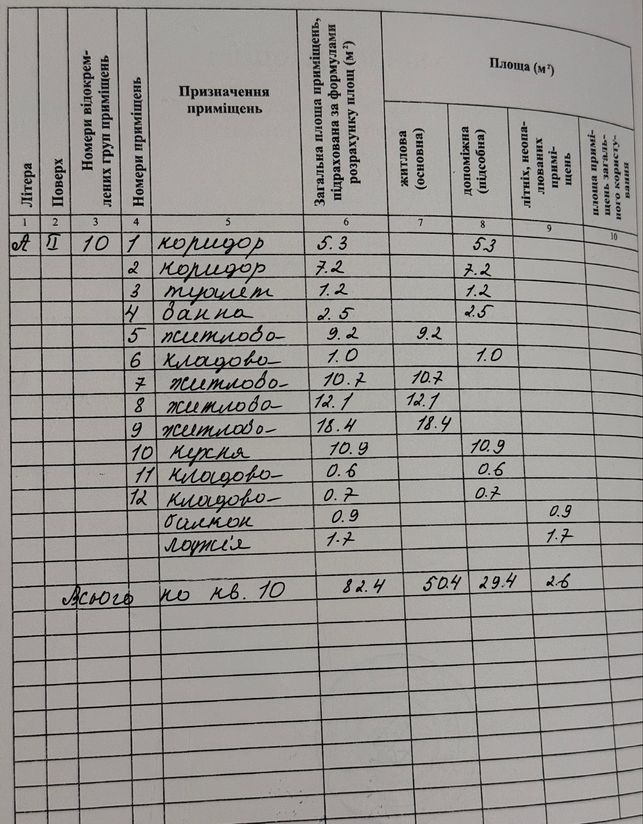 Літера
Поверх
Номери відокрем-
лених груп приміщень
Номери приміщень
Призначення
приміщень
Загальна площа приміщень,
підрахована за формулами
розрахунку площ (м²)
Площа (м²)
житлова
(основна)
допоміжна
(підсобна)
літніх, неопа-
люваних
примі-
щень
площа примі-
щень загаль-
ного користу-
вання
1 2 3 4 5 6 7 8 9 10
А ІІ 10 1 коридор 5.3 5.3
2 коридор 7.2 7.2
3 туалет 1.2 1.2
4 ванна 2.5 2.5
5 житлова 9.2 9.2
6 кладова 1.0 1.0
7 житлова 10.7 10.7
8 житлова 12.1 12.1
9 житлова 18.4 18.4
10 кухня 10.9 10.9
11 кладова 0.6 0.6
12 кладова 0.7 0.7
балкон 0.9 0.9
лоджія 1.7 1.7
Всього по кв. 10 82.4 50.4 29.4 2.6